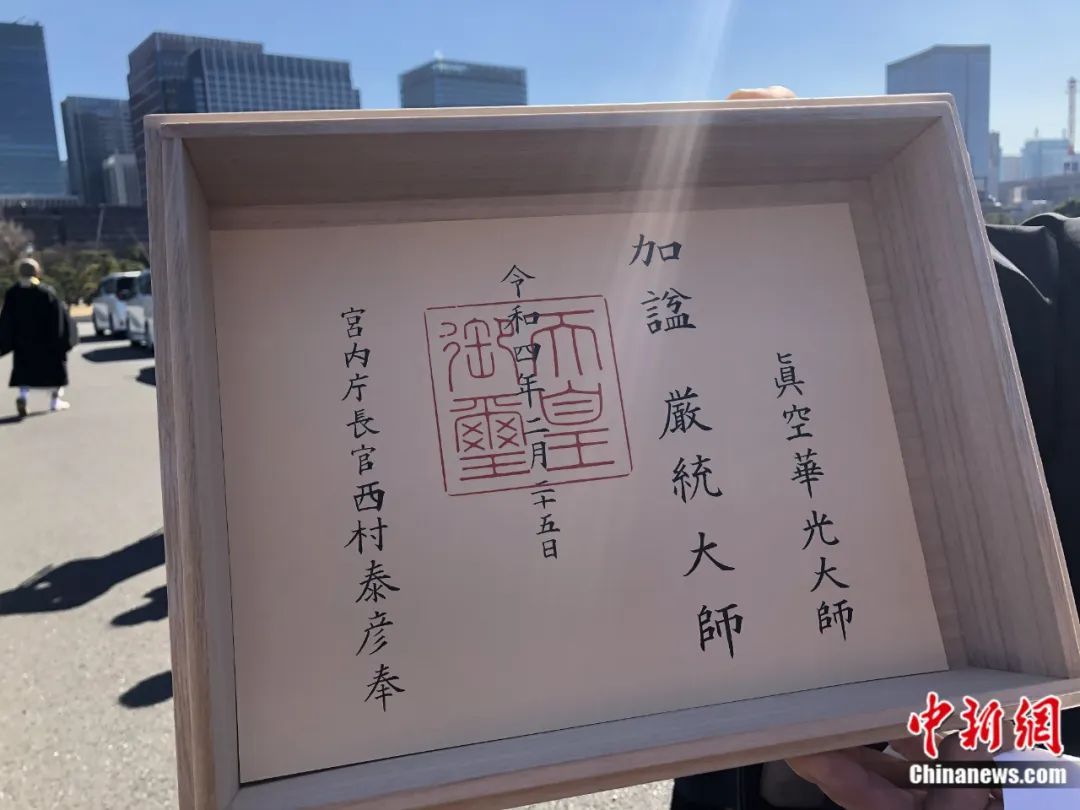 眞空華光大師
加諡 厳統大師
令和四年二月二十五日
天皇
御璽
宮内庁長官西村泰彦奉
中新網
Chinanews.com